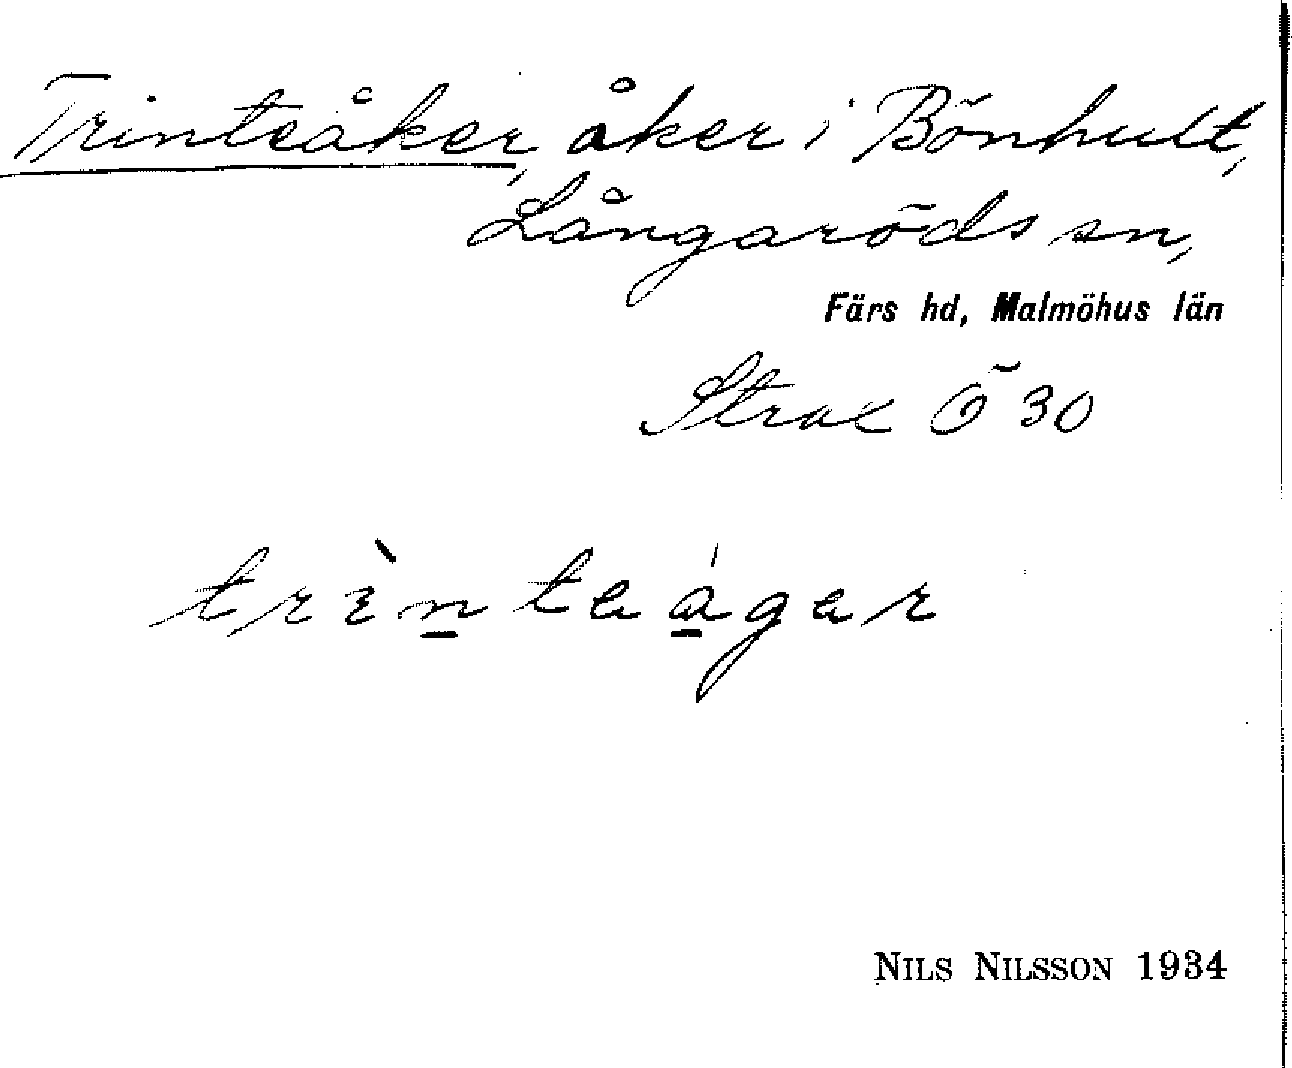 Trinteåker, åker i Bönhult,
Långaröds sn,
Färs hd, Malmöhus län
Strax Ö 30
trìnteágar
NILS NILSSON 1934